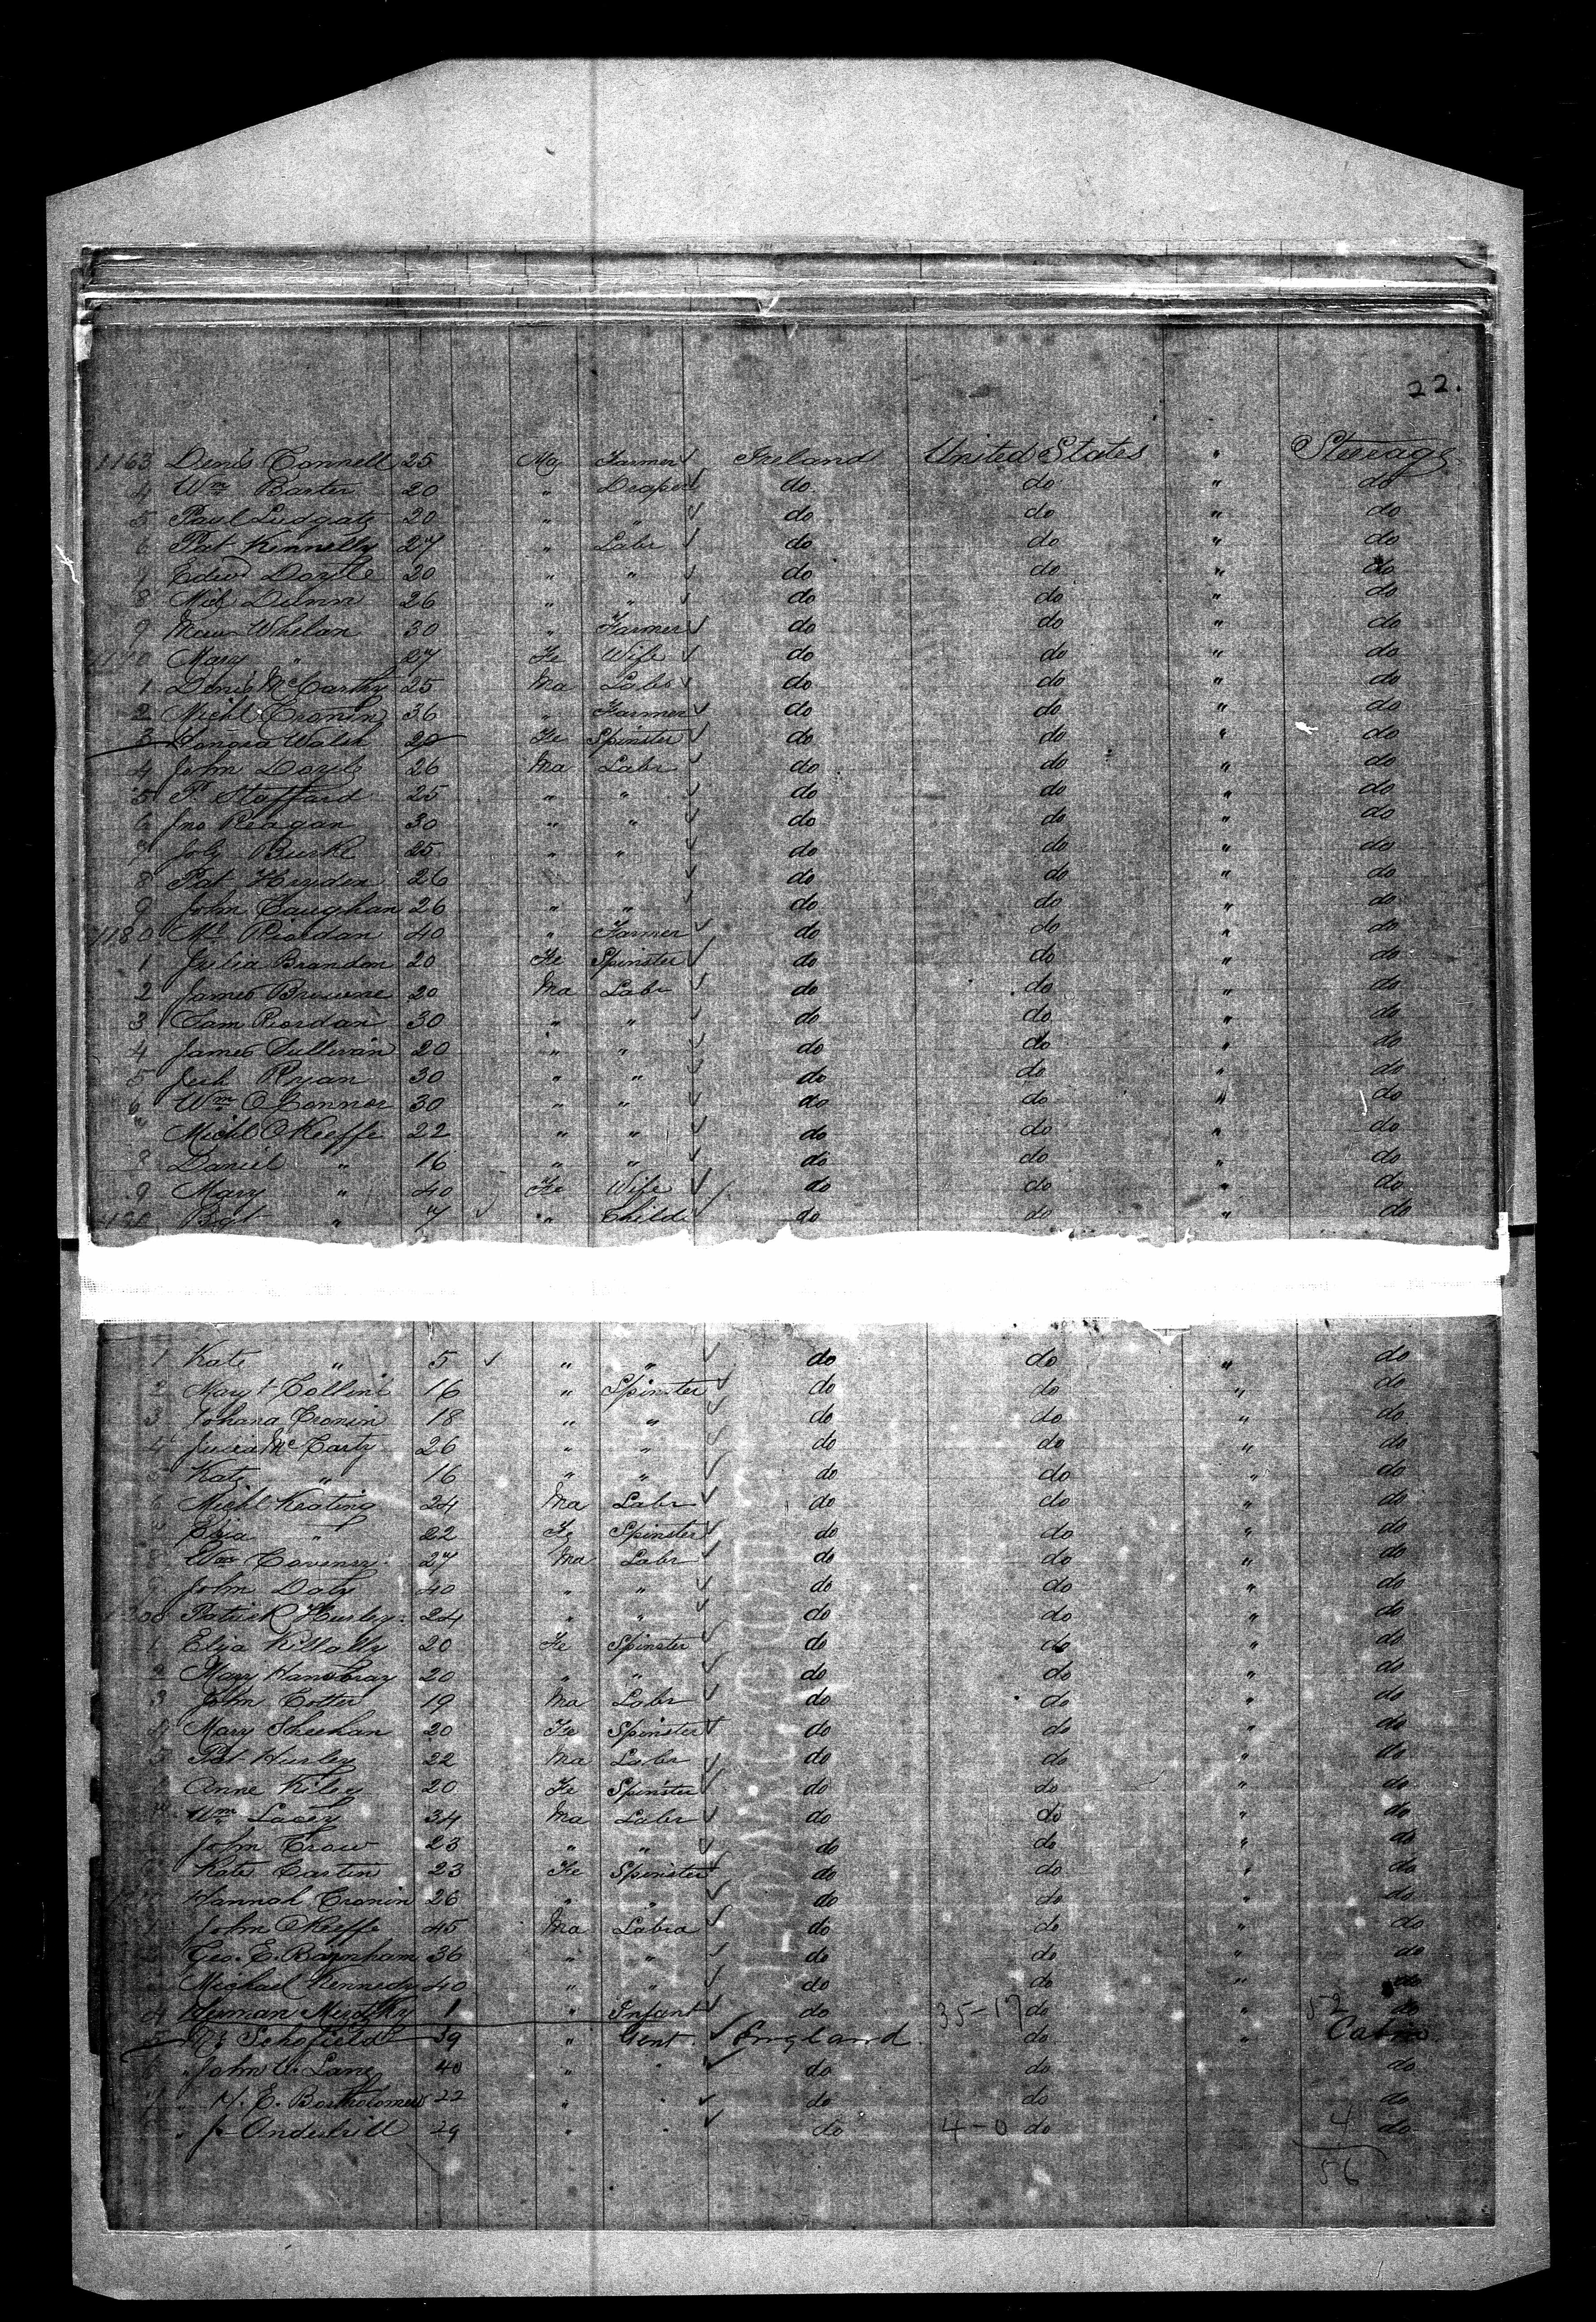 22.
1163 Denis Connell 25 Ma Farmer Ireland United States " Steerage
4 Wm Barter 20 " Draper do do " do
5 Paul Ludgate 20 " " do do " do
6 Pat Kennelly 27 " Labr do do " do
7 Edwd Doyle 20 " " do do " do
8 Mich Dunn 26 " " do do " do
9 Whelan 30 " Farmer do do " do
1170 Mary " 27 Fe Wife do do " do
1 Denis McCarthy 25 Ma Labr do do " do
2 Michl Cronin 36 " Farmer do do " do
3 Honora Walsh 20 Fe Spinster do do " do
4 John Doyle 26 Ma Labr do do " do
5 P. Stafford 25 " " do do " do
6 Jno Reagan 30 " " do do " do
7 Burke 25 " " do do " do
8 Pat Hayden 26 do do " do
9 John Caughan 26 " " do do " do
1180 Riordan 40 " Farmer do do " do
1 Julia Brandon 20 Fe Spinster do do " do
2 James Browne 20 Ma Labr do do " do
3 Riordan 30 " " do do " do
4 James Sullivan 20 " " do do " do
5 Ryan 30 " " do do " do
6 Wm OConnor 30 " " do do " do
" Michl OKeeffe 22 " " do do " do
8 Daniel " 16 " " do do " do
9 Mary " 40 Fe Wife do do " do
1190 Bgt " 7 " Child do do " do
1 Kate " 5 " " do do " do
2 Mary Collins 16 " Spinster do do " do
3 Johana Cronin 18 " " do do " do
4 Julia McCarty 26 " " do do " do
5 Kate " 16 " " do do " do
6 Michl Keating 24 Ma Labr do do " do
7 Eliza " 22 Fe Spinster do do " do
8 Wm 27 Ma Labr do do " do
9 John Daly 40 " " do do " do
1200 Patrick Hurley 24 " " do do " do
1 Eliza Killally 20 Fe Spinster do do " do
2 Mary Hanebray 20 " " do do " do
3 John Cotter 19 Ma Labr do do " do
4 Mary Sheehan 20 Fe Spinster do do " do
5 Pat Hurley 22 Ma Labr do do " do
Anne Kiley 20 Fe Spinster do do " do
Wm Lacey 34 Ma Labr do do " do
John Crow 23 " " do do " do
Kate Cartin 23 Fe Spinster do do " do
Hannah Cronin 26 " " do do " do
1 John OKeeffe 45 Ma Labra do do " do
Geo. E. Barnham 36 " " do do " do
Michael Kennedy 40 " " do do " do
4 Murphy 1 " Infant do 35-17 do " 52 do
5 Mr Schofield 39 " Gent. England do " Cabin
6 " John U. Lang 40 " " do do do
7 " H. E. Bartholomew 22 " " do do do
" J. Underhill 29 " " do 4-0 do 4 do
56